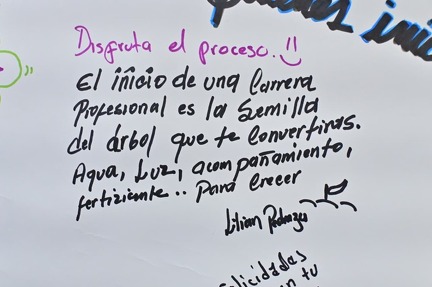 quienes inic
Disfruta el proceso.
El inicio de una Carrera
Profesional es la Semilla
del árbol que te Convertiras.
Agua, Luz, acompañamiento,
fertiziante.. Para Crecer
Lilian Pedraza
elicidades
en tu